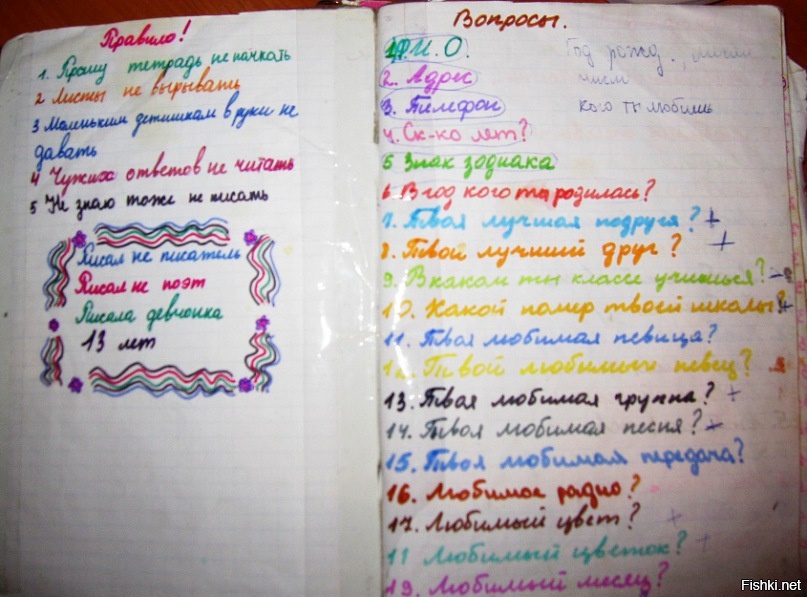 Правило!
1. Прошу тетрадь не пачкать
2 Листы не вырывать
3 Маленьким детишкам в руки не
давать
4 Чужих ответов не читать
5 Не знаю тоже не писать
Писал не писатель
Писал не поэт
Писала девчонка
13 лет
Вопросы.
1. Ф.И.О.
2. Адрес
3. Телефон
4. Ск-ко лет?
5 Знак зодиака
6. В год кого ты родилась?
7. Твоя лучшая подруга? +
8. Твой лучший друг? +
9. В каком ты классе учишься?
10. Какой номер твоей школы? +
11. Твоя любимая певица?
12. Твой любимый певец?
13. Твоя любимая группа? +
14. Твоя любимая песня? +
15. Твоя любимая передача?
16. Любимое радио?
17. Любимый цвет? +
11 Любимый цветок? +
19. Любимый месяц?
Год рожд.,
число
кого ты любишь
Fishki.net